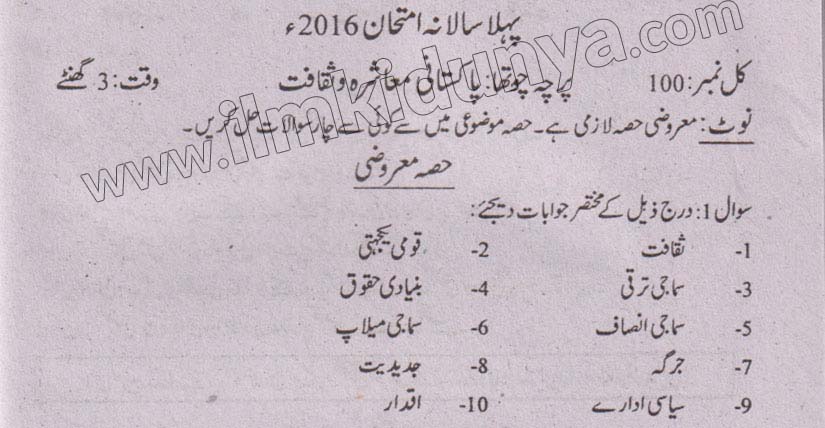 پہلا سالانہ امتحان 2016ء
کل نمبر: 100 پرچہ چوتھا: پاکستانی معاشرہ و ثقافت وقت: 3 گھنٹے
نوٹ: معروضی حصہ لازمی ہے۔ حصہ موضوعی میں سے کوئی سے چار سوالات حل کریں۔
حصہ معروضی
سوال 1: درج ذیل کے مختصر جوابات دیجئے:
1- ثقافت 2- قومی یکجہتی
3- سماجی ترقی 4- بنیادی حقوق
5- سماجی انصاف 6- سماجی میلاپ
7- جرگہ 8- جدیدیت
9- سیاسی ادارے 10- اقدار
www.ilmkidunya.com